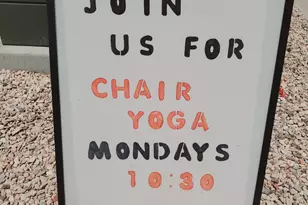 JOIN
US FOR
CHAIR
YOGA
MONDAYS
10:30